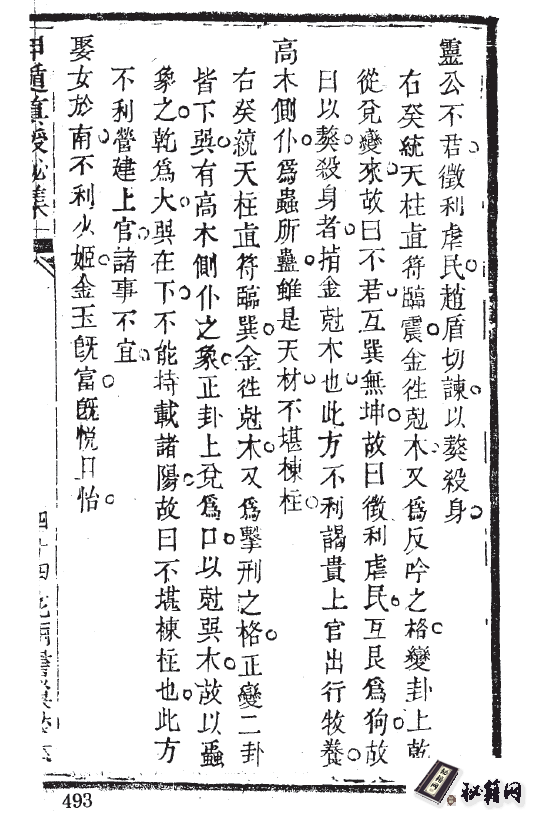 靈公不君徵利虐民趙盾切諫以獒殺身
右癸統天柱直符臨震金徃尅木又爲反吟之格變卦上乾
從兌變來故曰不君互巽無坤故曰徵利虐民互艮爲狗故
曰以獒殺身者指金尅木也此方不利謁貴上官出行牧養
高木側仆爲蟲所蠱雖是天材不堪棟柱
右癸統天柱直符臨巽金徃尅木又爲擊刑之格正變二卦
皆下巽有高木側仆之象正卦上兌爲口以尅巽木故以蟲
象之乾爲大巽在下不能持載諸陽故曰不堪棟柱也此方
不利營建上官諸事不宜
娶女於南不利少姬金玉旣富旣悅且怡
493
秘籍网